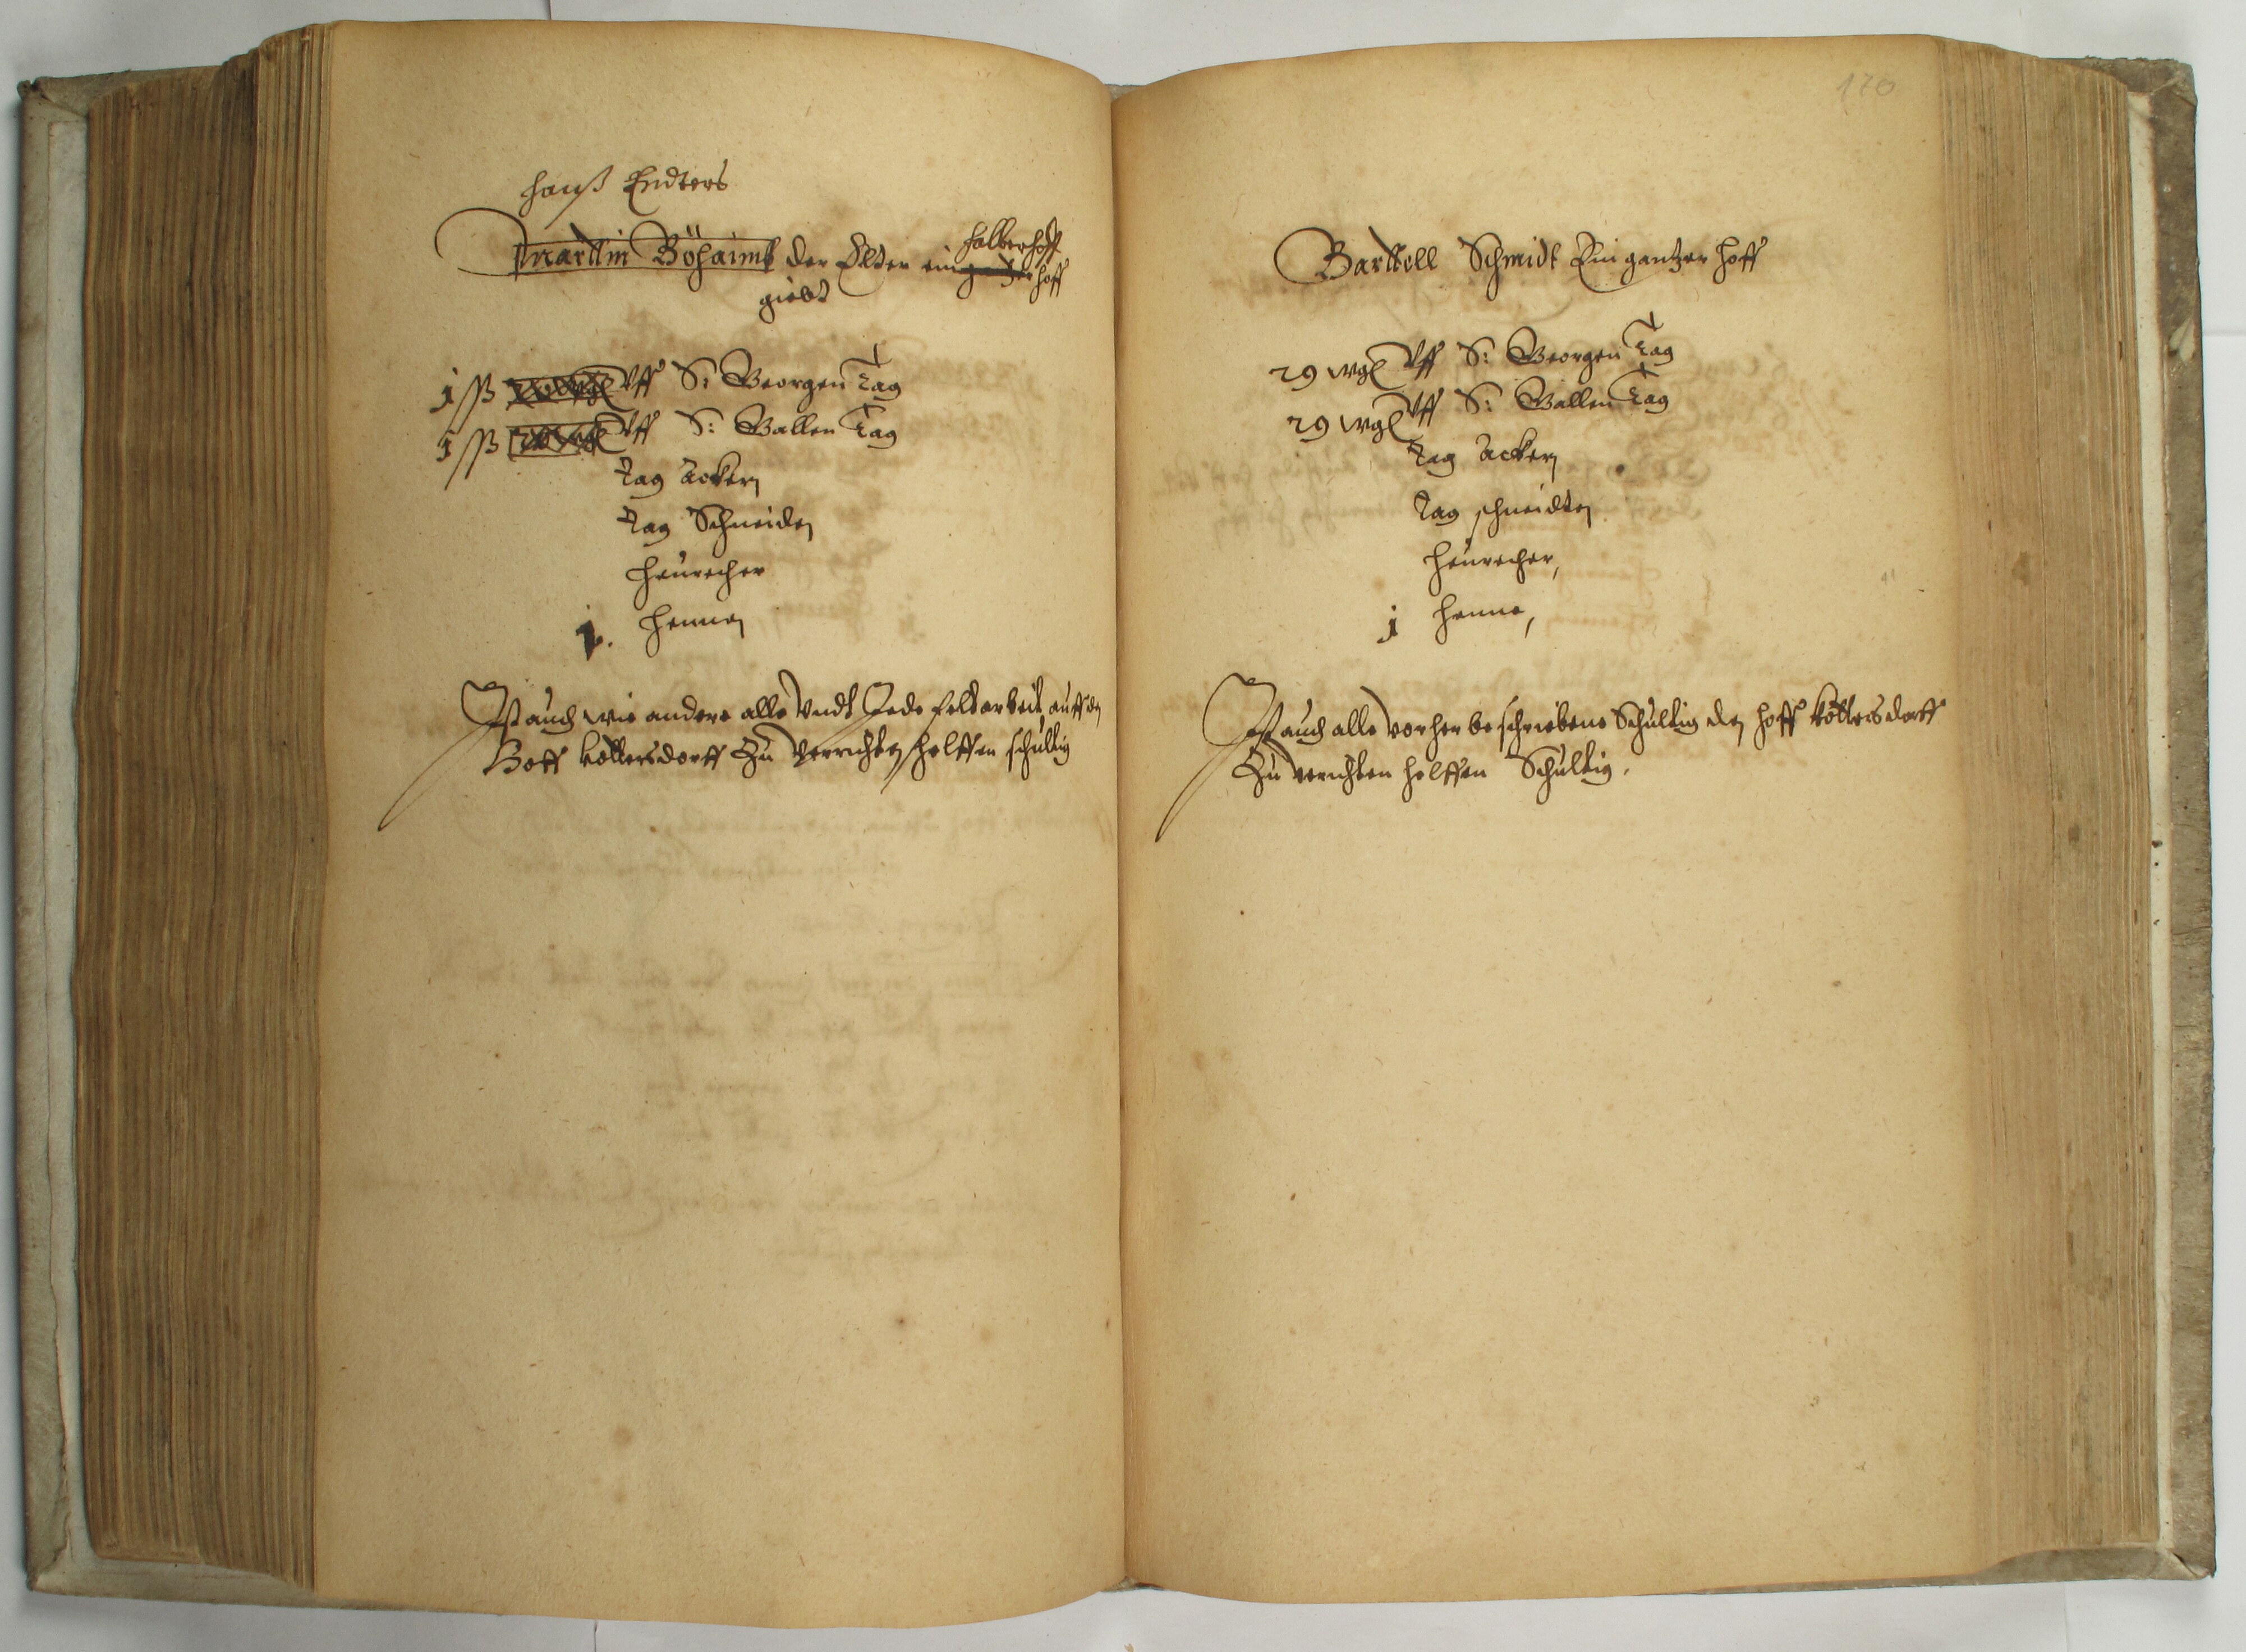 Hanß Endters
Marttin Böhaimb der Elter ein halberhoff
gantzer hoff
giebt
1 ßß Uff S: Georgen Tag
1 ßß Uff S: Gallen Tag
Tag Ackern
Tag Schneiden
Heurecher
1. Hennen
Ist auch wie andere alle Undt Jede feltarbeit auff den
Hoff Kottersdorff Zu verrichten helffen schultig
170
Barttell Schmidt Ein gantzer hoff
29 wgl Uff S: Georgen Tag
29 wgl Uff S: Gallen Tag
Tag Ackern
Tag schneidten
Heurecher,
1 Henne,
Ist auch alle vorherbeschriebene Schultig den hoff Kottersdorff
Zu verichten helffen Schultig.